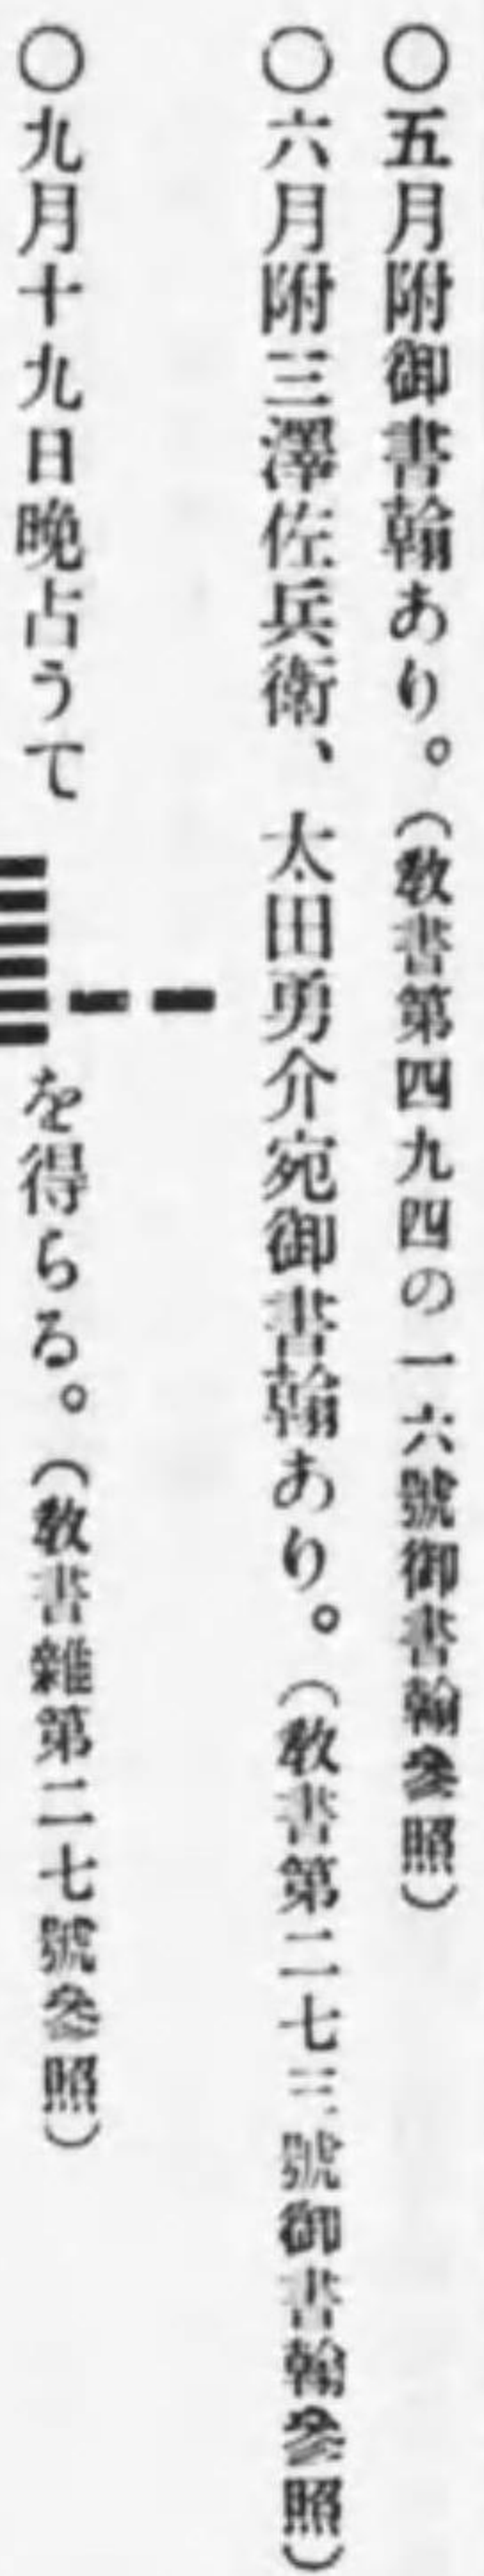 〇五月附御書翰あり。(敎書第四九四の一六號御書翰參照)
〇六月附三澤佐兵衞、太田勇介宛御書翰あり。(敎書第二七三號御書翰參照)
〇九月十九日晩占うて を得らる。(敎書雜第二七號參照)